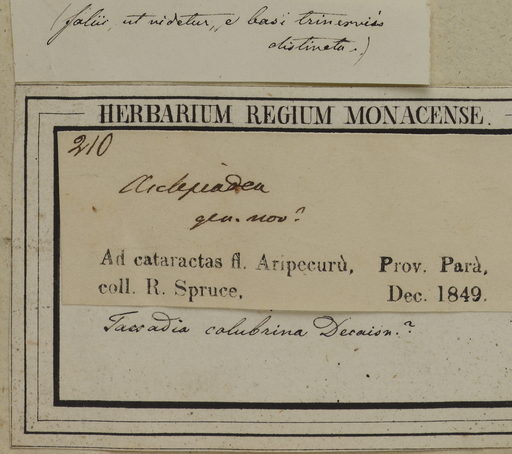 (foliis, ut videtur, e basi trinerviis
distincta.)
HERBARIUM REGIUM MONACENSE.
210
Asclepiadea
gen. nov?
Ad cataractas fl. Aripecurù, Prov. Parà,
coll. R. Spruce, Dec. 1849.
Tassadia colubrina Decaisn.?